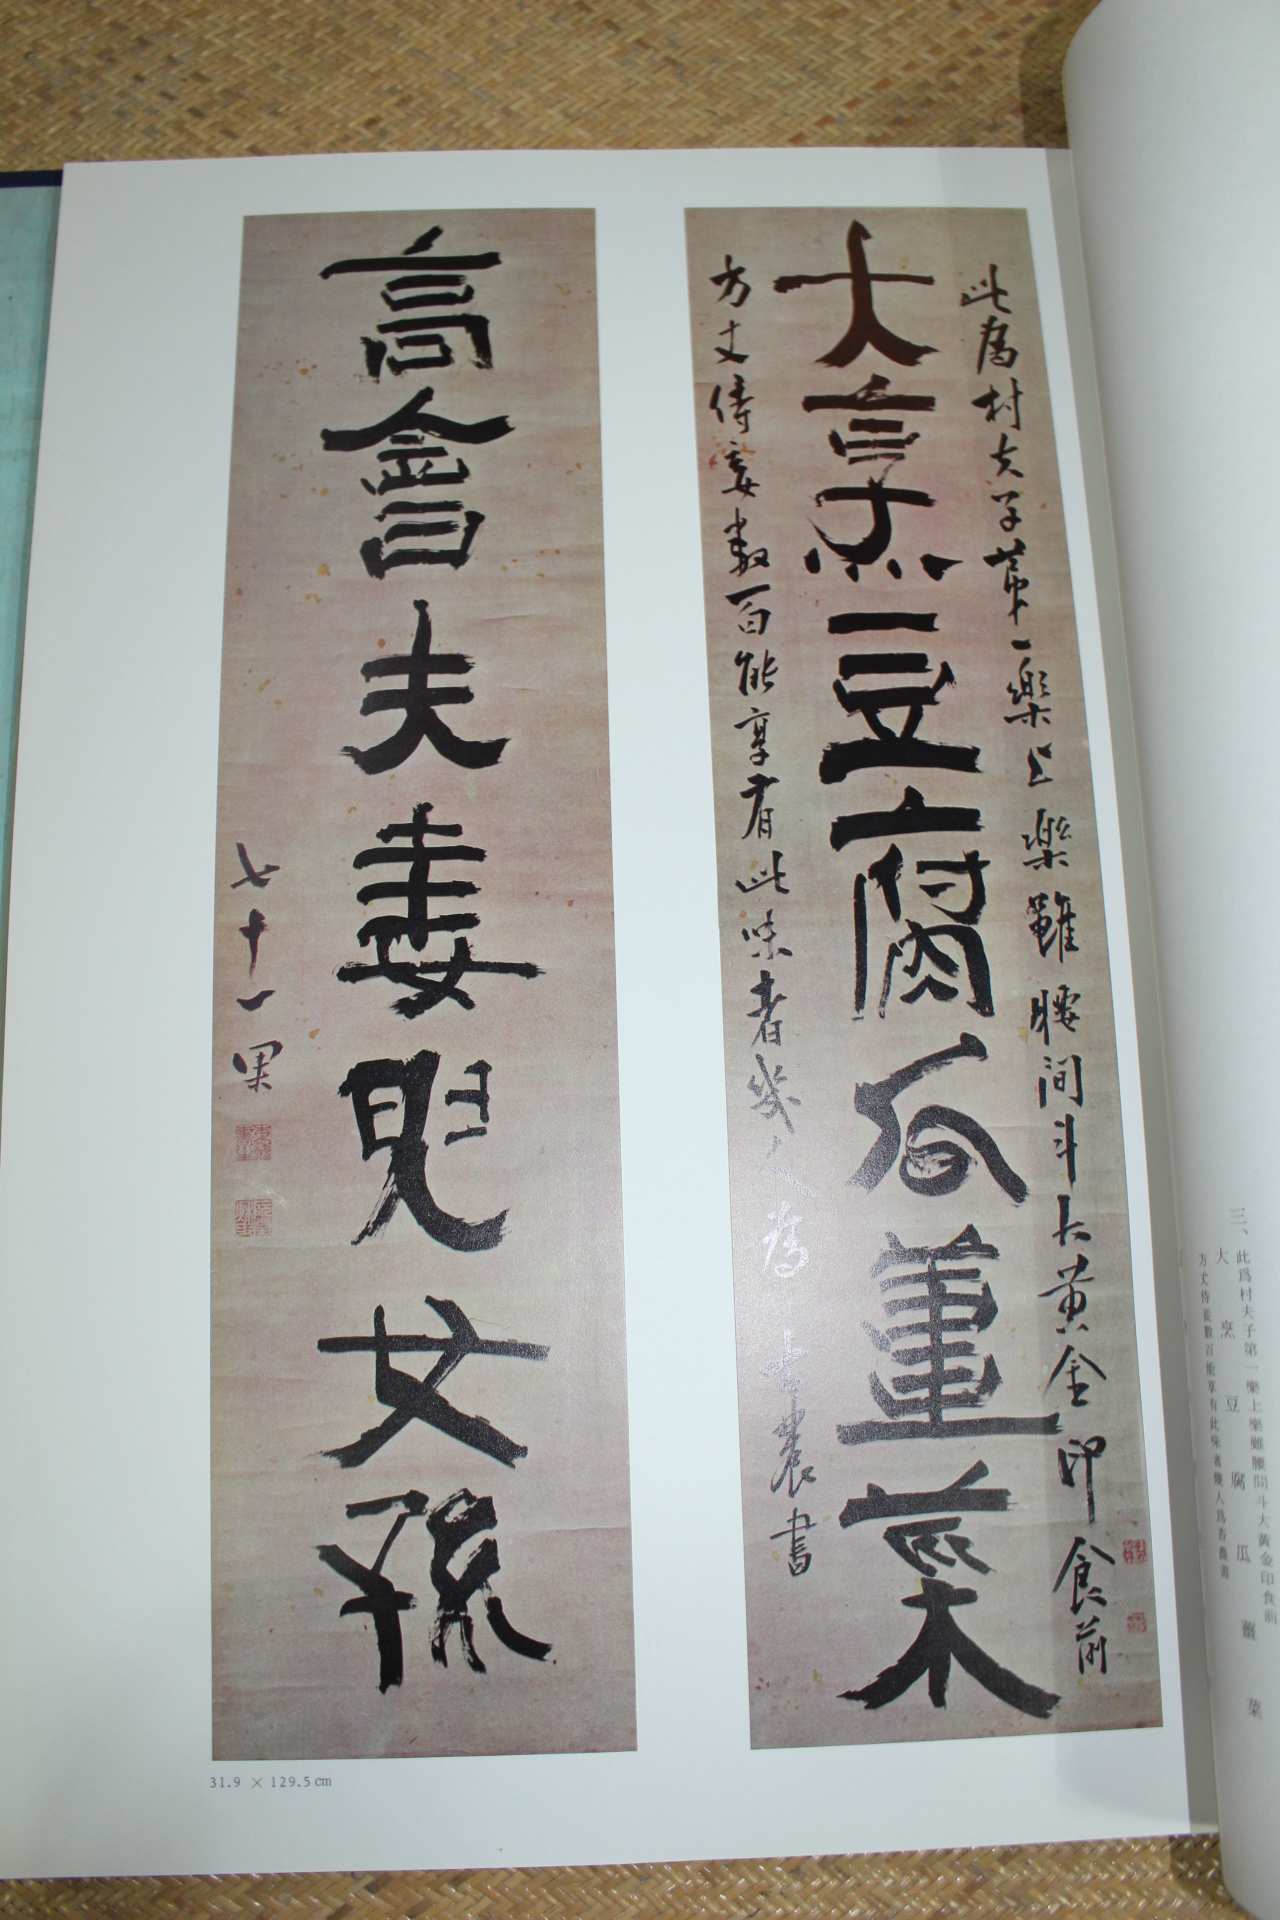 三、此爲村夫子第一樂上樂雖腰間斗大黃金印食前
大烹豆腐瓜薑菜
方丈侍妾數百能享有此味者幾人爲杏農書
此爲村夫子第一樂上樂雖腰間斗大黃金印食前
大烹豆腐瓜薑菜
方丈侍妾數百能享有此味者幾人爲杏農書
高會夫妻兒女孫
七十一果
31.9 × 129.5 cm